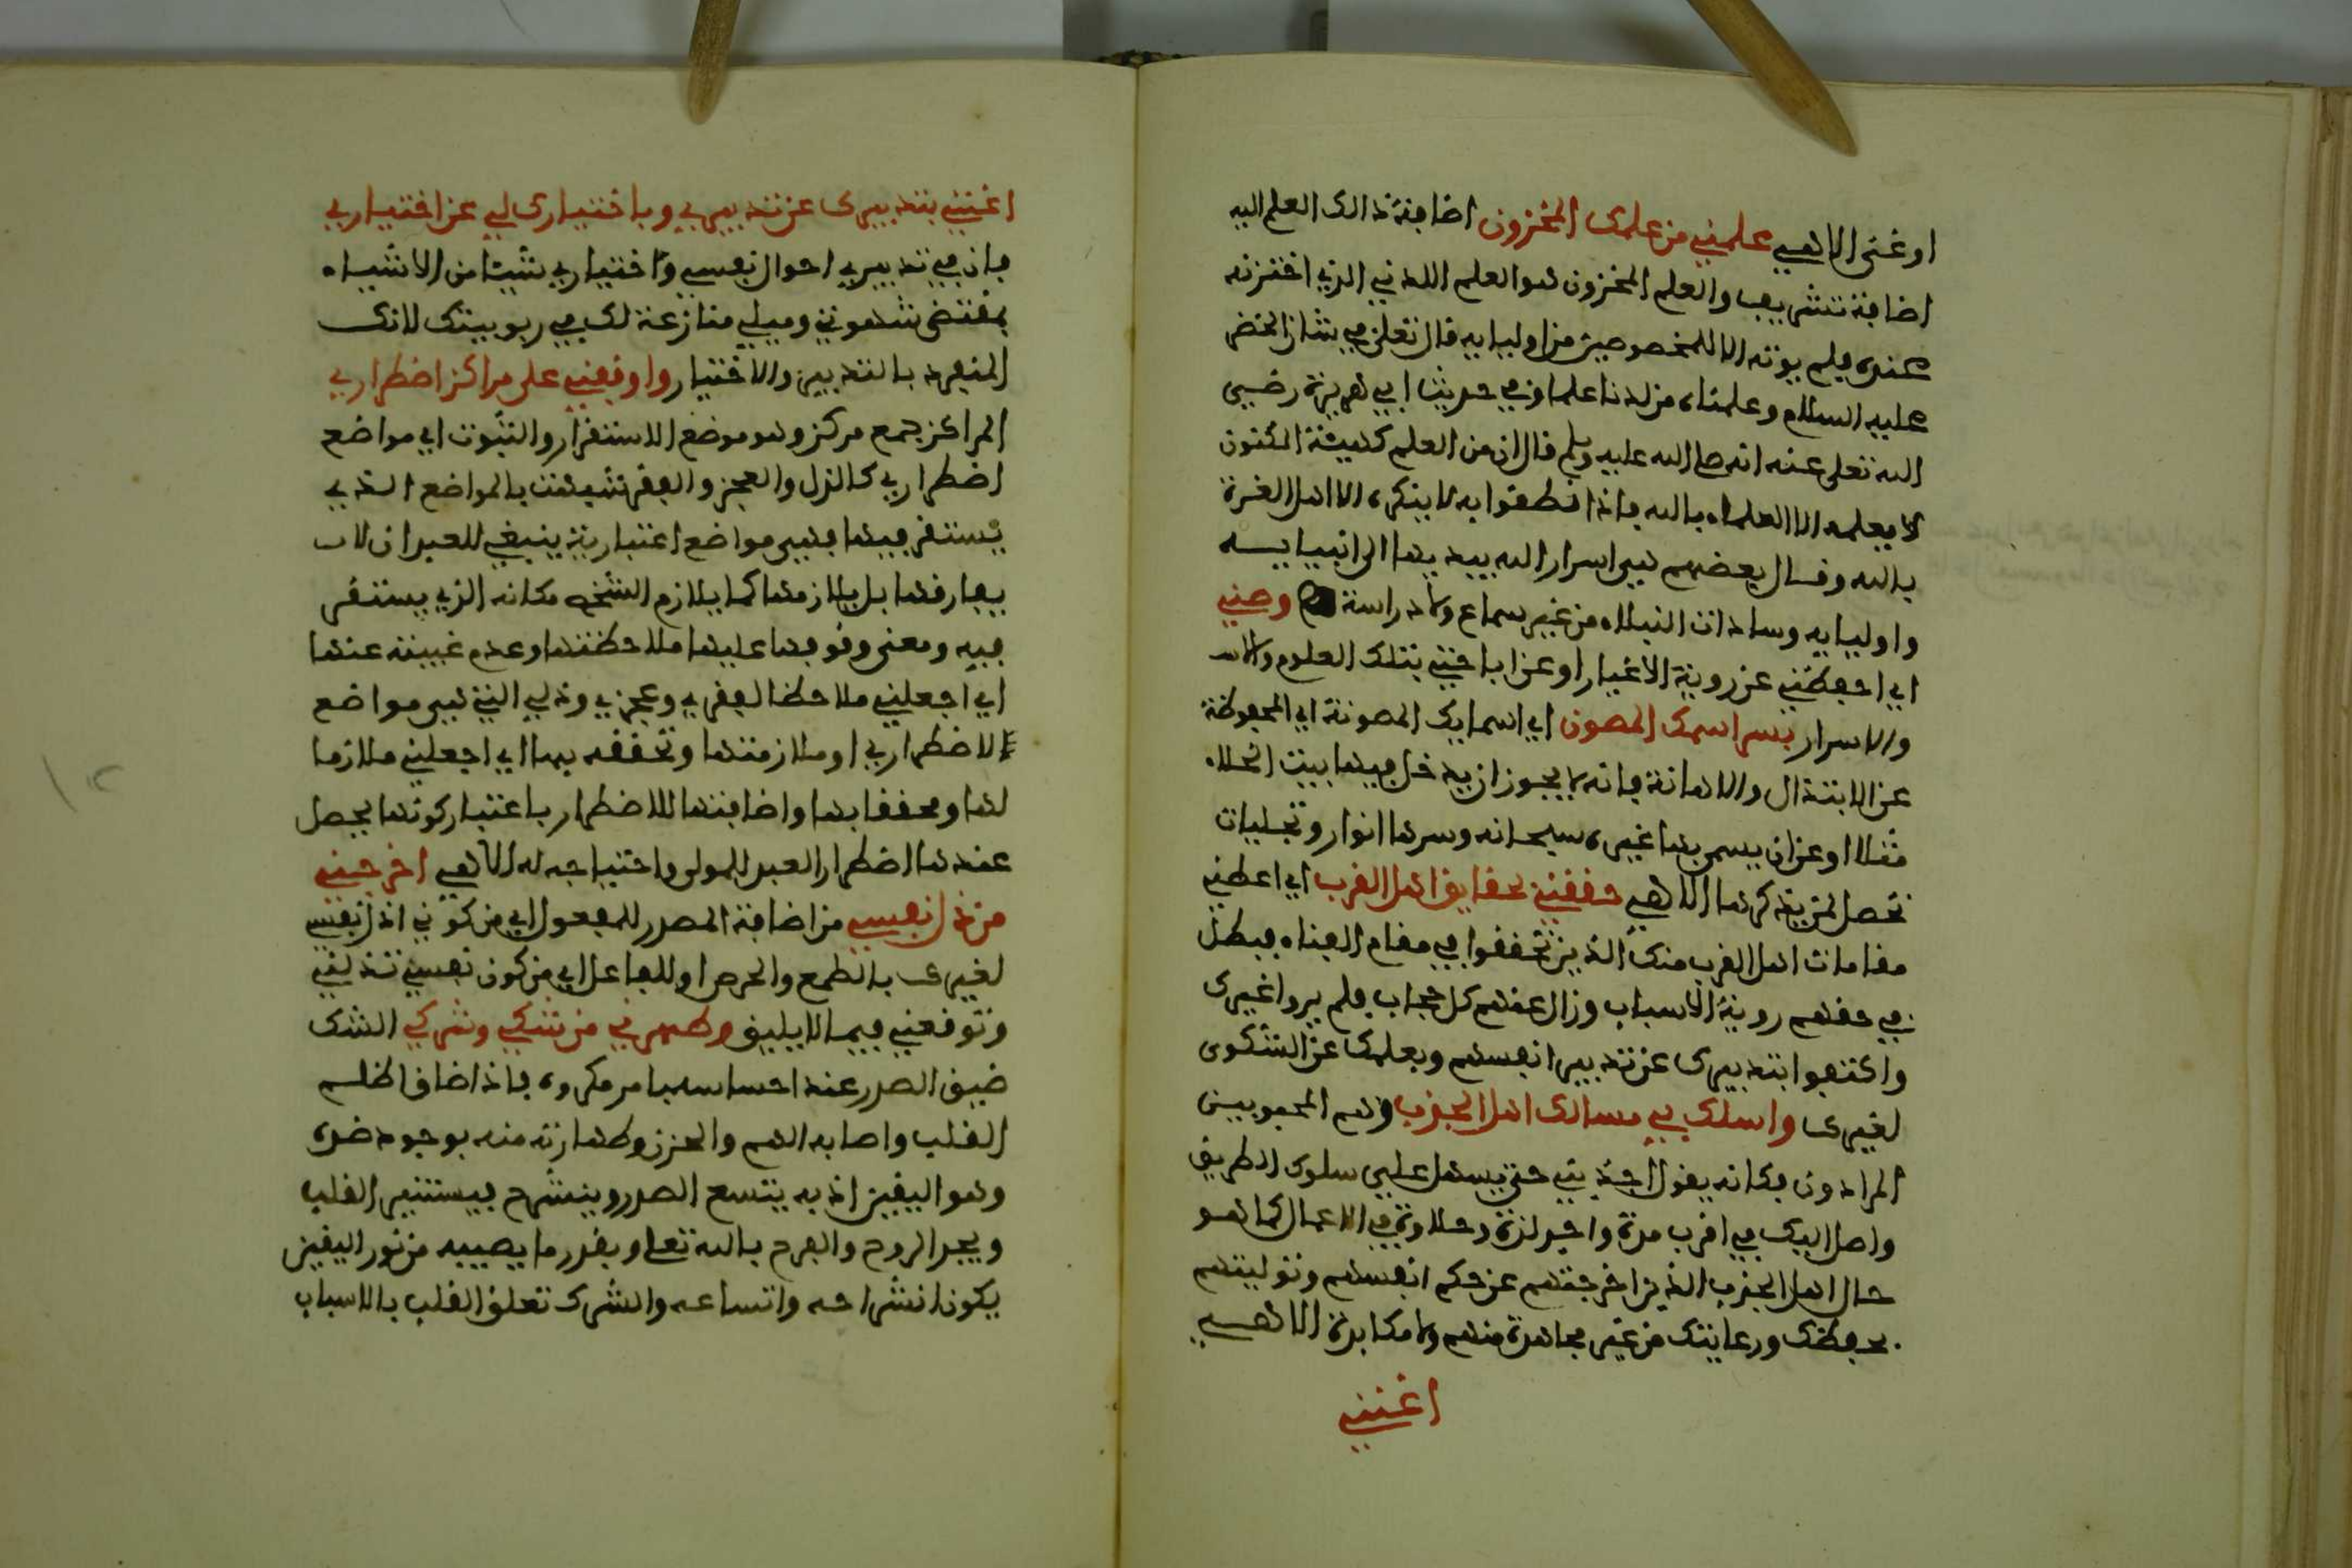 او غنى الاهي علمني من علمك المخزون اضافة ذالك العلم اليه
اضافة تشريف والعلم المخزون هو العلم اللدني الذي اختزنه
عنده فلم يوته الا للمخصوصين من اوليايه قال تعلى في شان الخضر
عليه السلام وعلمناه من لدنا علما وفي حديث ابي هريرة رضي
الله تعلى عنه انه صلى الله عليه وسلم قال ان من العلم كهيئة المكنون
لا يعلمه الا العلماء بالله فاذا نطقوا به لا ينكره الا اهل الغرة
بالله وقال بعضهم هي اسرار الله يبديها الى انبيايه
واوليايه وسادات النبلاء من غير سماع ولا دراسة وصني
اي احفظني عن روية الاغيار او عن اباحتي بتلك العلوم
والاسرار بسر اسمك المصون اي اسمايك المصونة اي المحفوظة
عن الابتذال والاهانة فانه لا يجوز ان يدخل فيها بيت الخلاء
مثلا او عن ان يسمى بها غيره سبحانه وسرها انوار وتجليات
تحصل لمن يذكرها الاهي حققني بحقايق اهل القرب اي اعطني
مقامات اهل القرب منك الذين تحققوا في مقام الفناء فبطل
في حقهم روية الاسباب وزال عنهم كل حجاب فلم يروا غيرك
واكتفوا بتدبيرك عن تدبير انفسهم وبعلمك عن الشكوى
لغيرك واسلك بي مسالك اهل الجذب وهم المحبوبين
المرادون فكانه يقول اجذبني حتى يسهل علي سلوك الطريق
واصل اليك في اقرب مدة واجد لذة وحلاوة في الاعمال كما هو
حال اهل الجذب الذين اخرجتهم عن حكم انفسهم وتوليتهم
بحفظك ورعايتك من غير مجاهدة منهم ولا مكابدة الاهي
اغنني
اغنني بتدبيرك عن تدبيري وباختيارك لي عن اختياري
فان في تدبيري احوال نفسي واختياري شيئا من الاشياء
بمقتضى شهوتي وميلي منازعة لك في ربوبيتك لانك
المنفرد بالتدبير والاختيار واوقفني على مراكز اضطراري
المراكز جمع مركز وهو موضع الاستقرار والثبوت اي مواضع
اضطراري كالذل والعجز والفقر شبهت بالمواضع الذي
يستقر فيها فهي مواضع اعتبارية ينبغي للعبد ان لا
يفارقها بل يلازمها كما يلازم الشخص مكانه الذي يستقر
فيه ومعنى وقوفها عليها ملاحظتها وعدم غيبته عنها
اي اجعلني ملاحظا لفقري وعجزي وذلي التي هي مواضع
الاضطراري او ملازمتها وتحققه بها اي اجعلني ملازما
لها ومحققا بها واضافتها للاضطرار باعتبار كونها يحصل
عندها اضطرار العبد للمولى واحتياجه له الاهي اخرجني
من ذل نفسي من اضافة المصدر للمفعول اي من كوني اذل نفسي
لغيرك بالطمع والحرص او للفاعل اي من كون نفسي تذلني
وتوقعني فيما لا يليق وطهرني من شكي وشركي الشك
ضيق الصدر عند احساسه بامر مكروه فاذا ضاق اظلم
القلب واصابه الهم والحزن وطهارته منه بوجود ضده
وهو اليقين اذ به يتسع الصدر وينشرح فيستنير القلب
ويجد الروح والفرح بالله تعلى وبقدر ما يصيبه من نور اليقين
يكون انشراحه واتساعه والشرك تعلق القلب بالاسباب